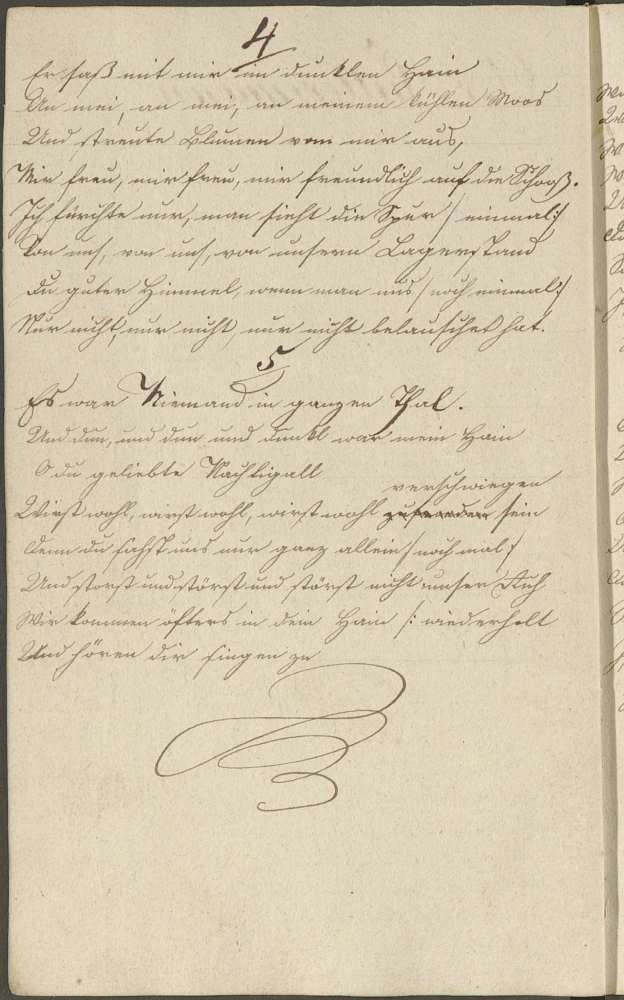 4
Er saß mit mir im dunklen Hain
An mei, an mei, an meinem kühlen Moos
Und streute Blumen vom mir aus,
Mir freu, mir freu, mir freundlich auf die Schooß.
Ich fürchte nur, man sieht die Spur /: einmal :/
Von uns, von uns, von unsern Lagerstand
Du guter Himmel, wenn man uns /: noch einmal :/
Nur nicht, nur nicht, nur nicht belauschet hat.
5
Es war Niemand in ganzen Thal.
Und dun, und dun und dunkl war mein Hain
O du geliebte Nachtigall
verschwiegen
Wirst wohl, wirst wohl, wirst wohl zufrieden sein
Denn du sahst uns nur ganz allein /: noch mal :/
Und storst und störst und störst nicht unser Ruh
Wir kommen öfters in dein Hain /: wiederholt
Und hören dir singen zu